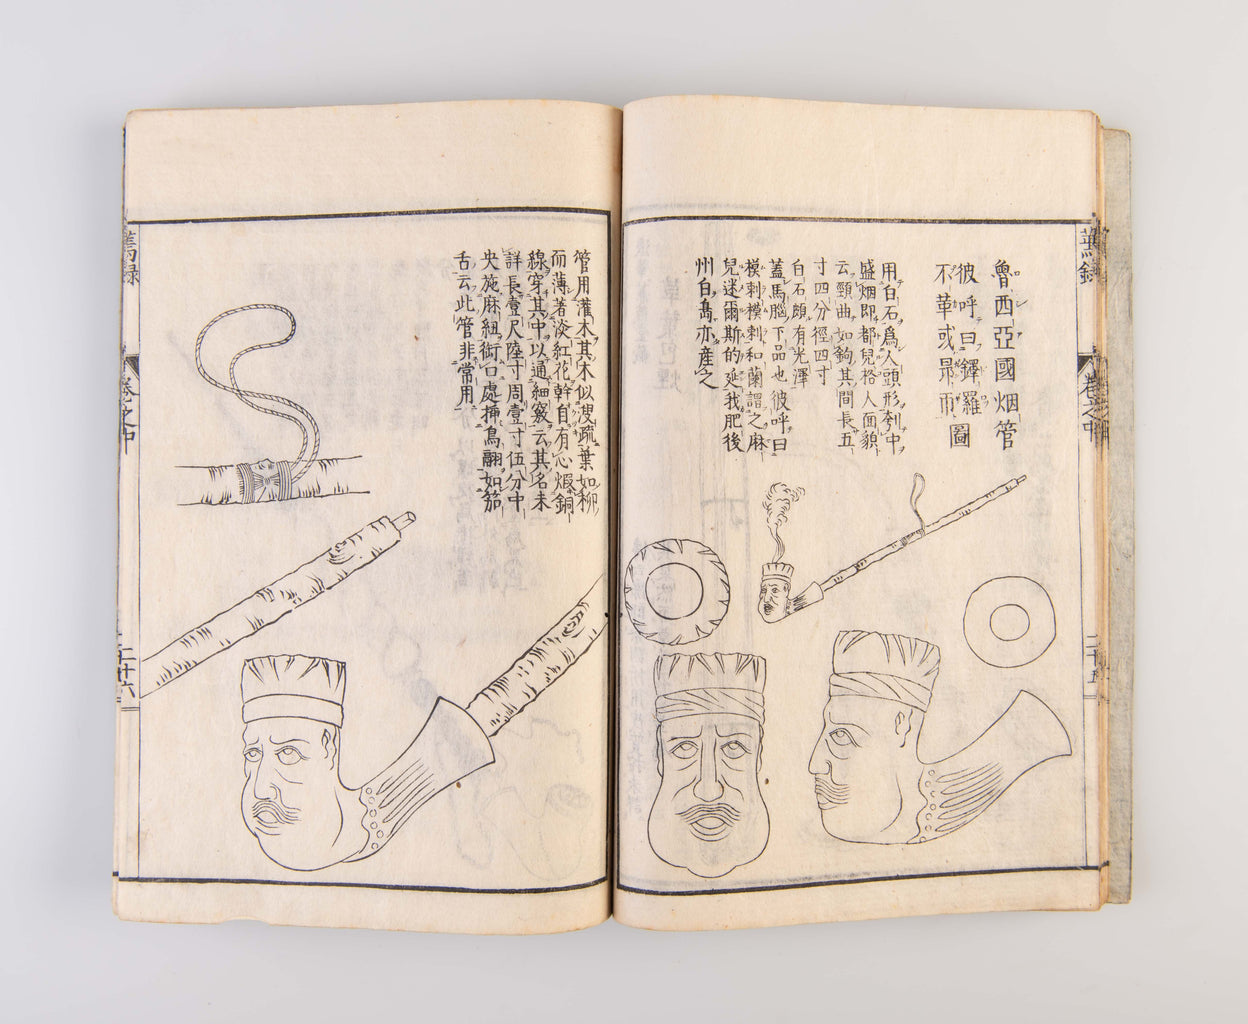 魯西亞國烟管
彼呼曰鐸羅
不革或昂而圖
用白石爲人頭形刳中
盛烟即都兒格人面貌
云頸曲如鉤其間長五
寸四分徑四寸
白石頗有光澤
蓋馬腦下品也彼呼曰
模刺模刺和蘭謂之麻
兒迷爾斯的延我肥後
州白嶌亦産之
蔫錄
卷之中
二十五
管用灌木其木似叟疏葉如柳
而薄著淡紅花幹自有心煅銅
線穿其中以通細竅云其名未
詳長壹尺陸寸周壹寸伍分中
央施麻紐銜口處揷鳥翮如笳
舌云此管非常用
蔫録
卷之中
二十六